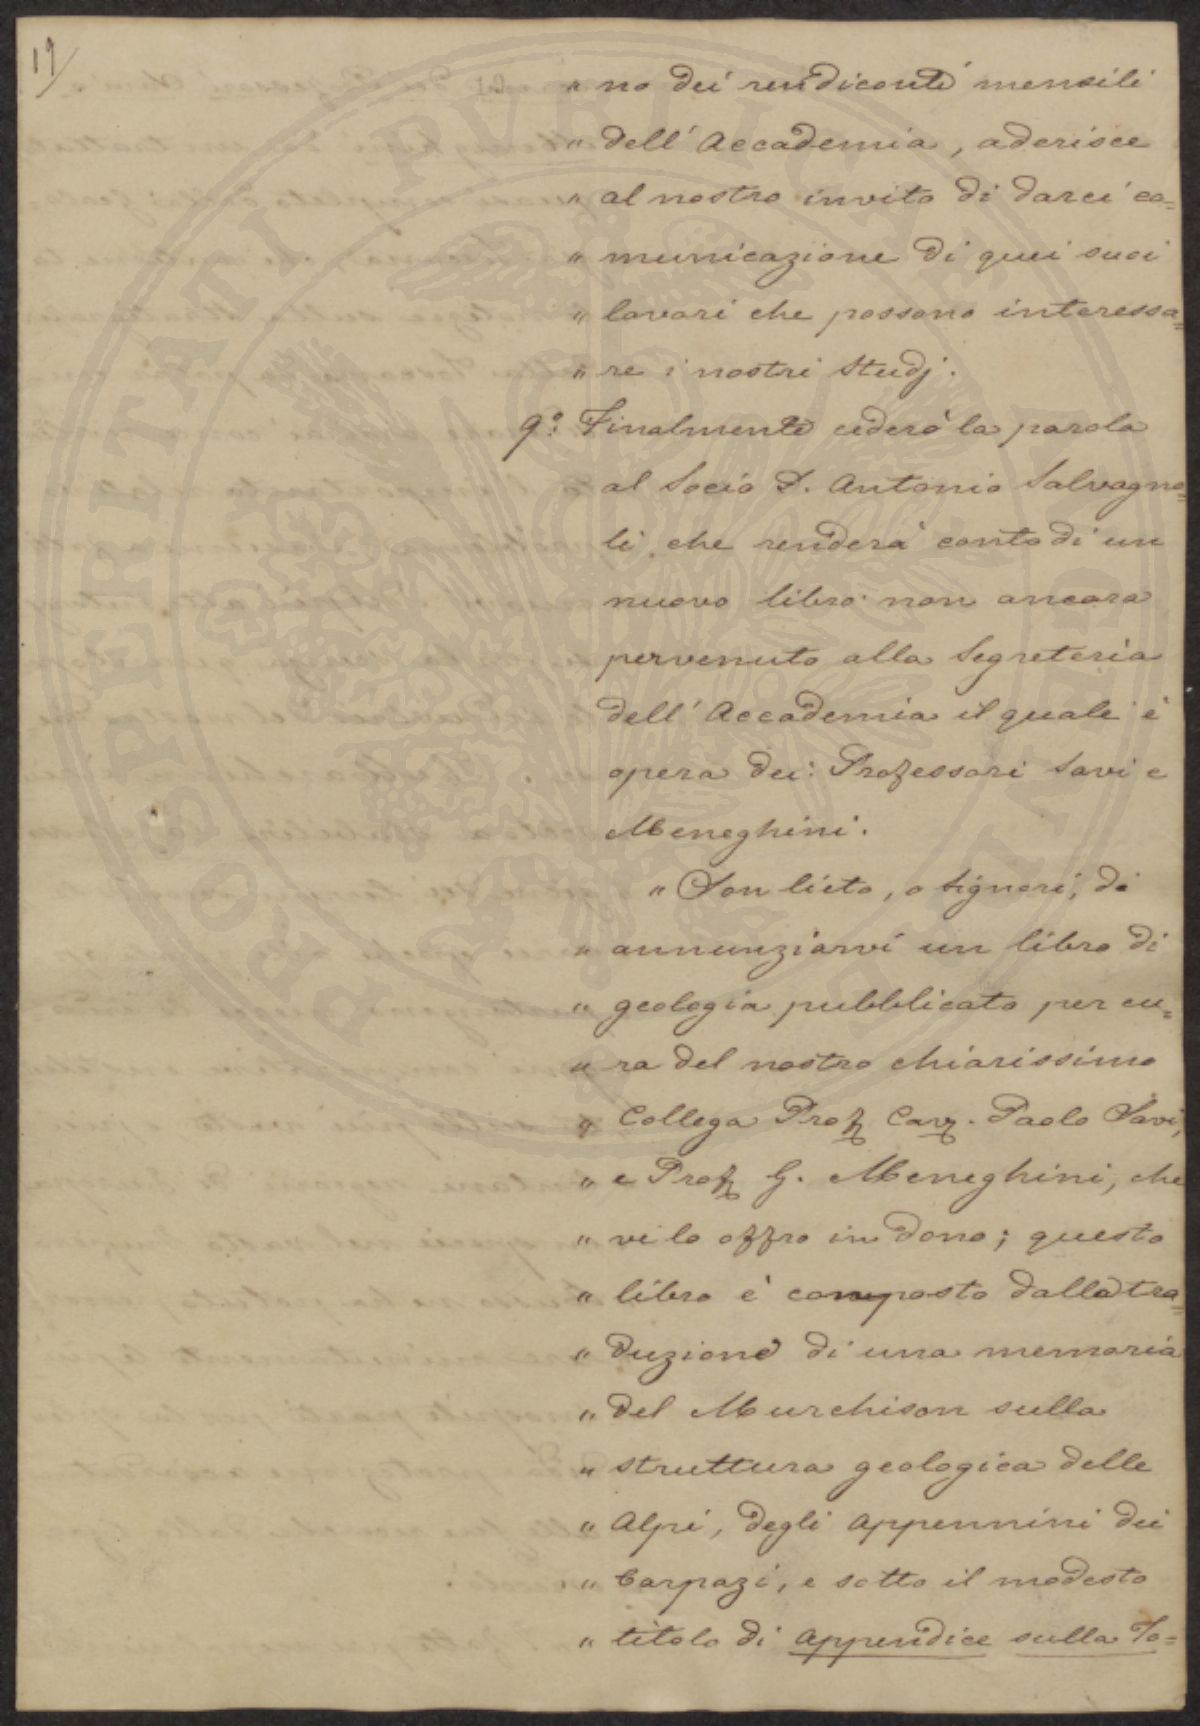 19/
" no dei rendiconti mensili
" dell'Accademia, aderisce
" al nostro invito di darci co=
" municazione di quei suoi
" lavori che possono interessa=
" re i nostri Studj.
9.° Finalmente cederò la parola
al Socio D. Antonio Salvagno=
li che renderà conto di un
nuovo libro non ancora
pervenuto alla Segreteria
dell'Accademia il quale è
opera dei Professori Savi e
Meneghini.
" Son lieto, o Signori, di
" annunziarvi un libro di
" geologia pubblicato per cu=
" ra del nostro chiarissimo
" Collega Prof. Cav. Paolo Savi,
" e Prof. G. Meneghini, che
" ve lo offro in dono; questo
" libro è composto dalla tra=
" duzione di una memoria
" del Murchison sulla
" struttura geologica delle
" Alpi, degli Appennini dei
" Carpazi, e sotto il modesto
" titolo di Appendice sulla To=
PROSPERITATI PVBLICAE AVGENDAE